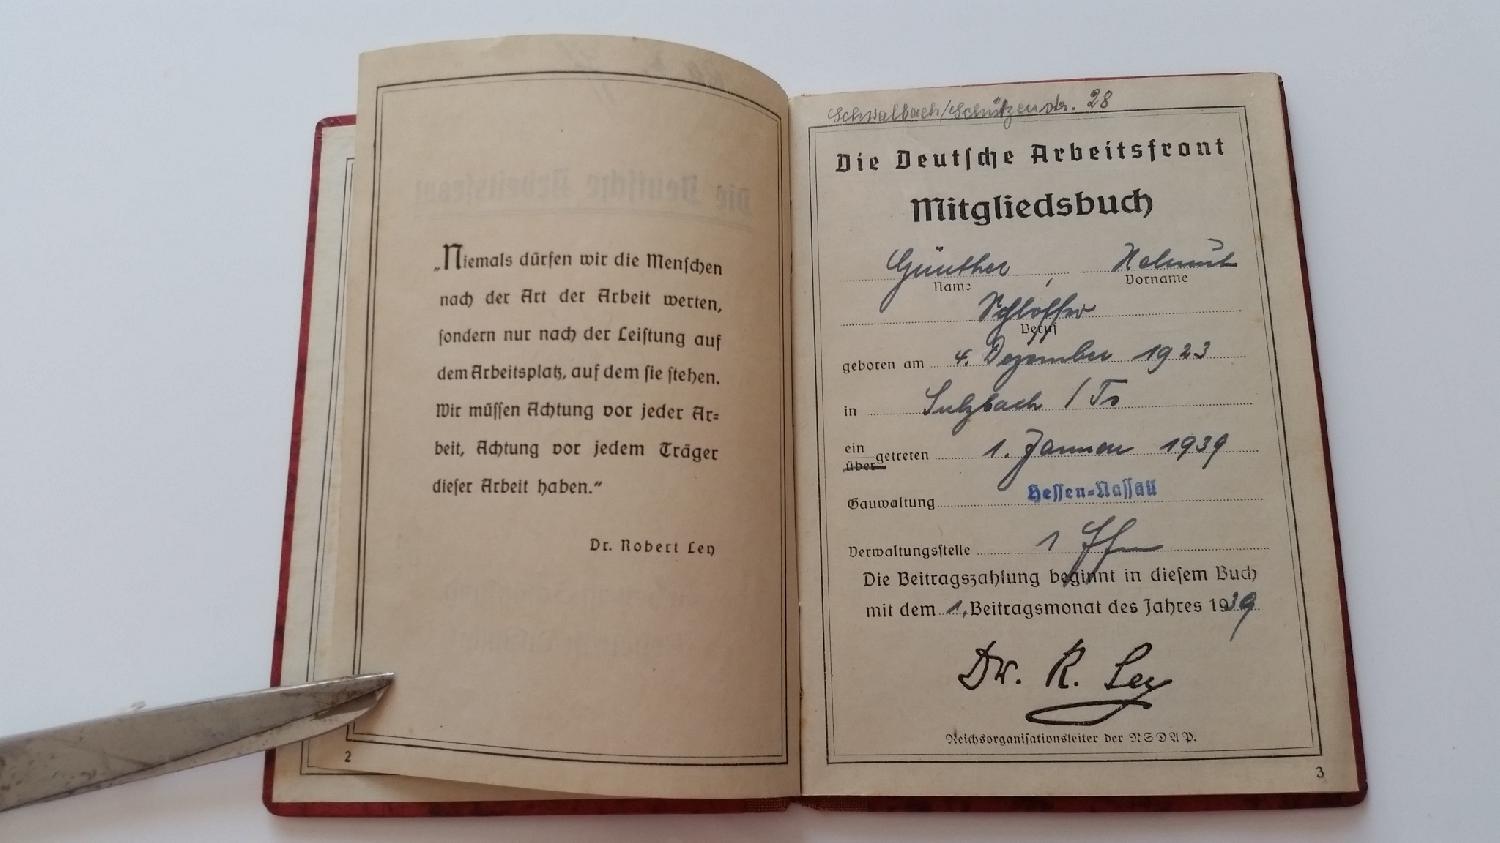 „Niemals dürfen wir die Menschen
nach der Art der Arbeit werten,
sondern nur nach der Leistung auf
dem Arbeitsplatz, auf dem sie stehen.
Wir müssen Achtung vor jeder Ar=
beit, Achtung vor jedem Träger
dieser Arbeit haben.“
Dr. Robert Ley
2
Schwalbach/Schützenstr. 28
Die Deutsche Arbeitsfront
Mitgliedsbuch
Günther Helmut
Name Vorname
Schlosser
Beruf
geboren am 4. Dezember 1923
in Sulzbach / Ts
ein
über getreten 1. Januar 1939
Gauwaltung Hessen-Nassau
Verwaltungsstelle 1
Die Beitragszahlung beginnt in diesem Buch
mit dem 1. Beitragsmonat des Jahres 1939
Dr. R. Ley
Reichsorganisationsleiter der NSDAP.
3